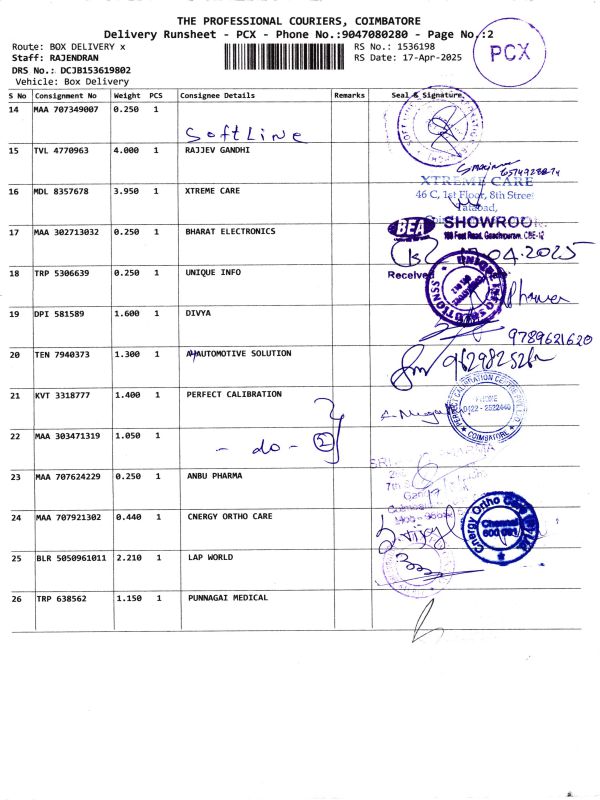 THE PROFESSIONAL COURIERS, COIMBATORE
Delivery Runsheet - PCX - Phone No.:9047080280 - Page No.:2
Route: BOX DELIVERY x RS No.: 1536198
Staff: RAJENDRAN RS Date: 17-Apr-2025
DRS No.: DCJB153619802
Vehicle: Box Delivery
PCX
S No Consignment No Weight PCS Consignee Details Remarks Seal & Signature
14 MAA 707349007 0.250 1
Softline
15 TVL 4770963 4.000 1 RAJJEV GANDHI
16 MDL 8357678 3.950 1 XTREME CARE
XTREME CARE
46 C, 1st Floor, 8th Street
Tatabad,
17 MAA 302713032 0.250 1 BHARAT ELECTRONICS
BEA SHOWROO
100 Feet Road, Gandhipuram, CBE-12
04.2025
Received
18 TRP 5306639 0.250 1 UNIQUE INFO
19 DPI 581589 1.600 1 DIVYA
9789621620
20 TEN 7940373 1.300 1 AUTOMOTIVE SOLUTION
21 KVT 3318777 1.400 1 PERFECT CALIBRATION
PERFECT CALIBRATION CENTRE
PHONE
0422 - 2522440
COIMBATORE
22 MAA 303471319 1.050 1
- do - 2
23 MAA 707624229 0.250 1 ANBU PHARMA
SRI
24 MAA 707921302 0.440 1 CNERGY ORTHO CARE
Cnergy Ortho Care
Chennai
25 BLR 5050961011 2.210 1 LAP WORLD
26 TRP 638562 1.150 1 PUNNAGAI MEDICAL